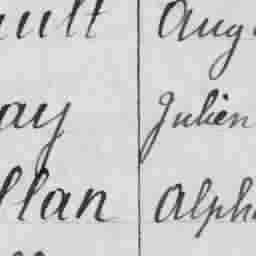 ault Aug
ay Julien
llan Alph